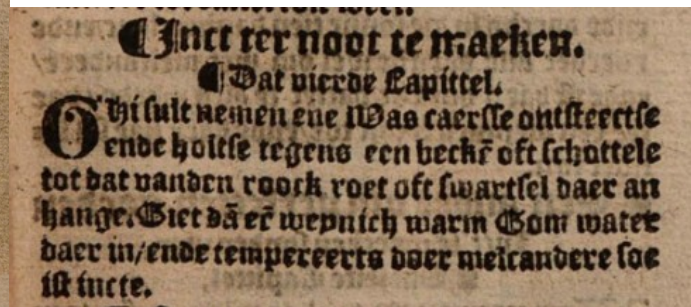 ¶ Inct ter noot te maeken.
¶ Dat vierde Capittel.
Ghi sult nemen ene Was caersse ontsteectse
ende holtse tegens een beckē oft schottele
tot dat vanden roock roet oft swartsel daer an
hange. Giet dā eē weynich warm Gom water
daer in/ende tempereerts doer melcandere soe
ist incte.